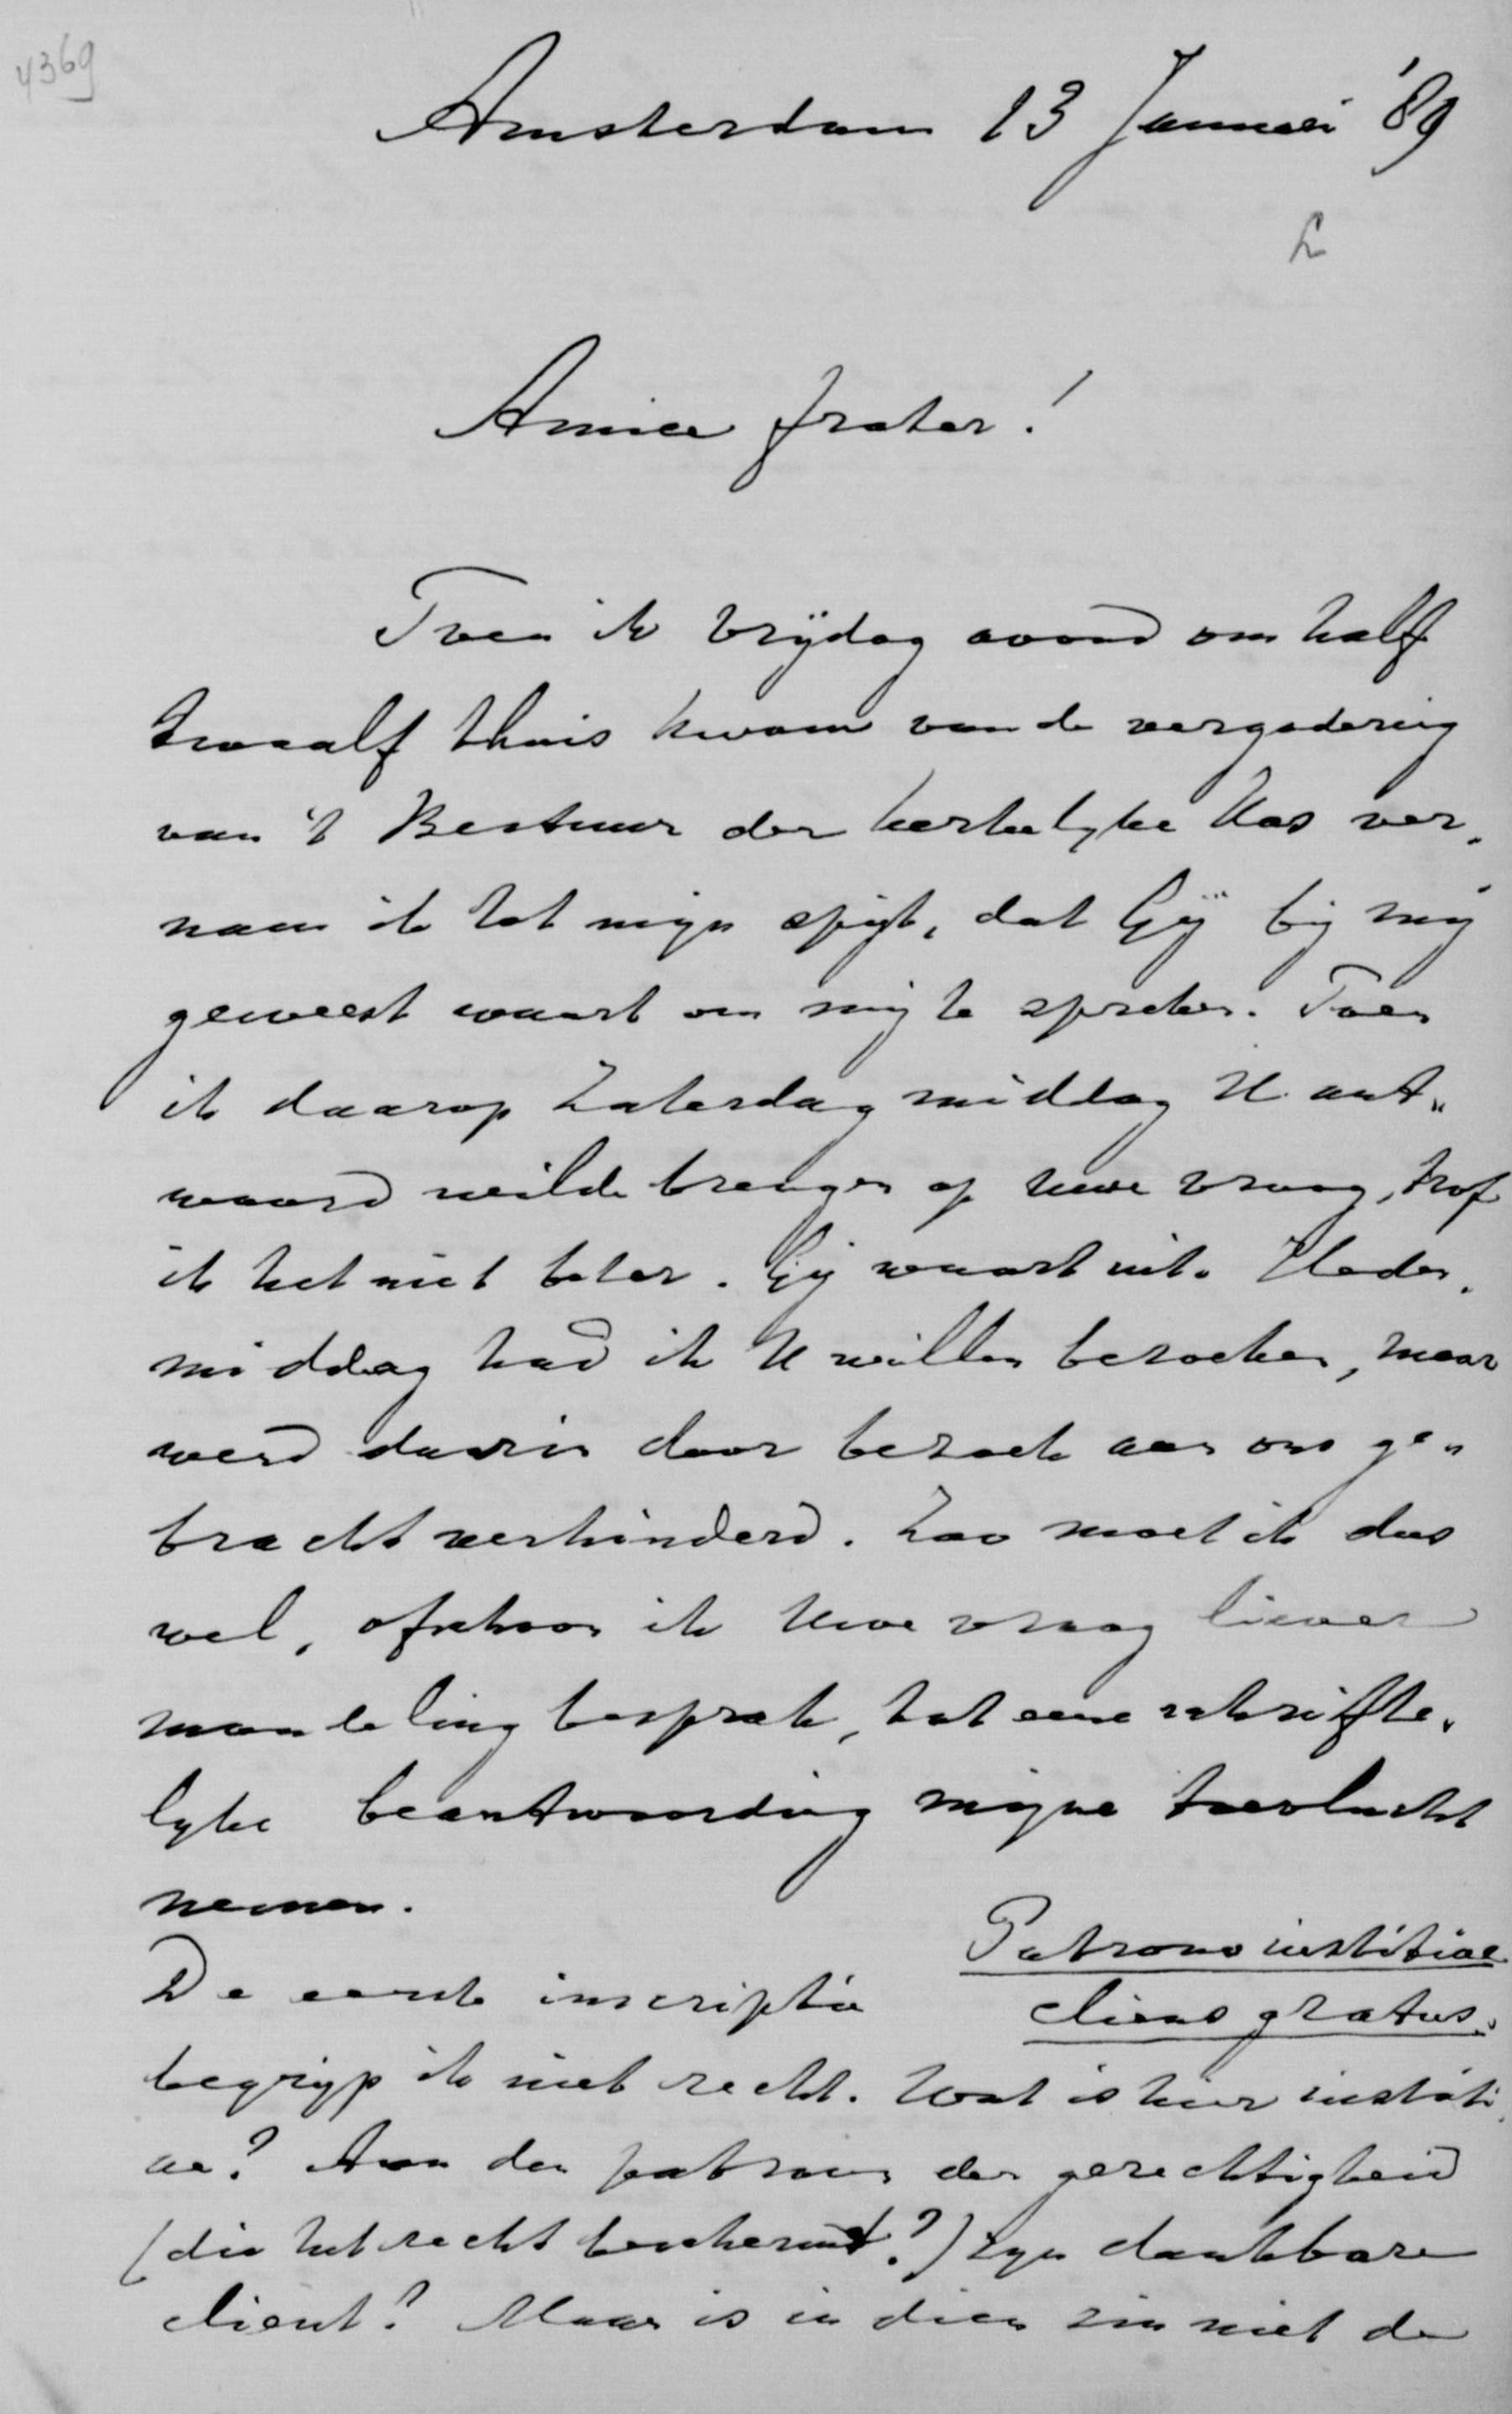 4369
Amsterdam 13 Januari '89
L
Amice frater!
Toen ik Vrijdag avond om half
twaalf thuis kwam van de vergadering
van 't Bestuur der kerkelijke Kas ver„
nam ik tot mijn spijt, dat Gij bij mij
geweest waart om mij te spreken. Toen
ik daarop Zaterdag middag U ant„
woord wilde brengen op Uwe vraag, trof
ik het niet beter. Gij waart uit. Heden„
middag had ik U willen bezoeken, maar
werd daarin door bezoek aan ons ge„
bracht verhinderd. Zoo moet ik dus
wel, ofschoon ik Uwe vraag liever
mondeling besprak, tot eene schrifte„
lijke beantwoording mijne toevlucht
nemen.
Patrono iustitiae
De eerste inscriptie cliens gratus.
begrijp ik niet recht. Wat is hier iustiti„
ae? Aan den patroon der gerechtigheid
(die het recht beschermt?) zijn dankbare
client? Maar is in dien zin niet de